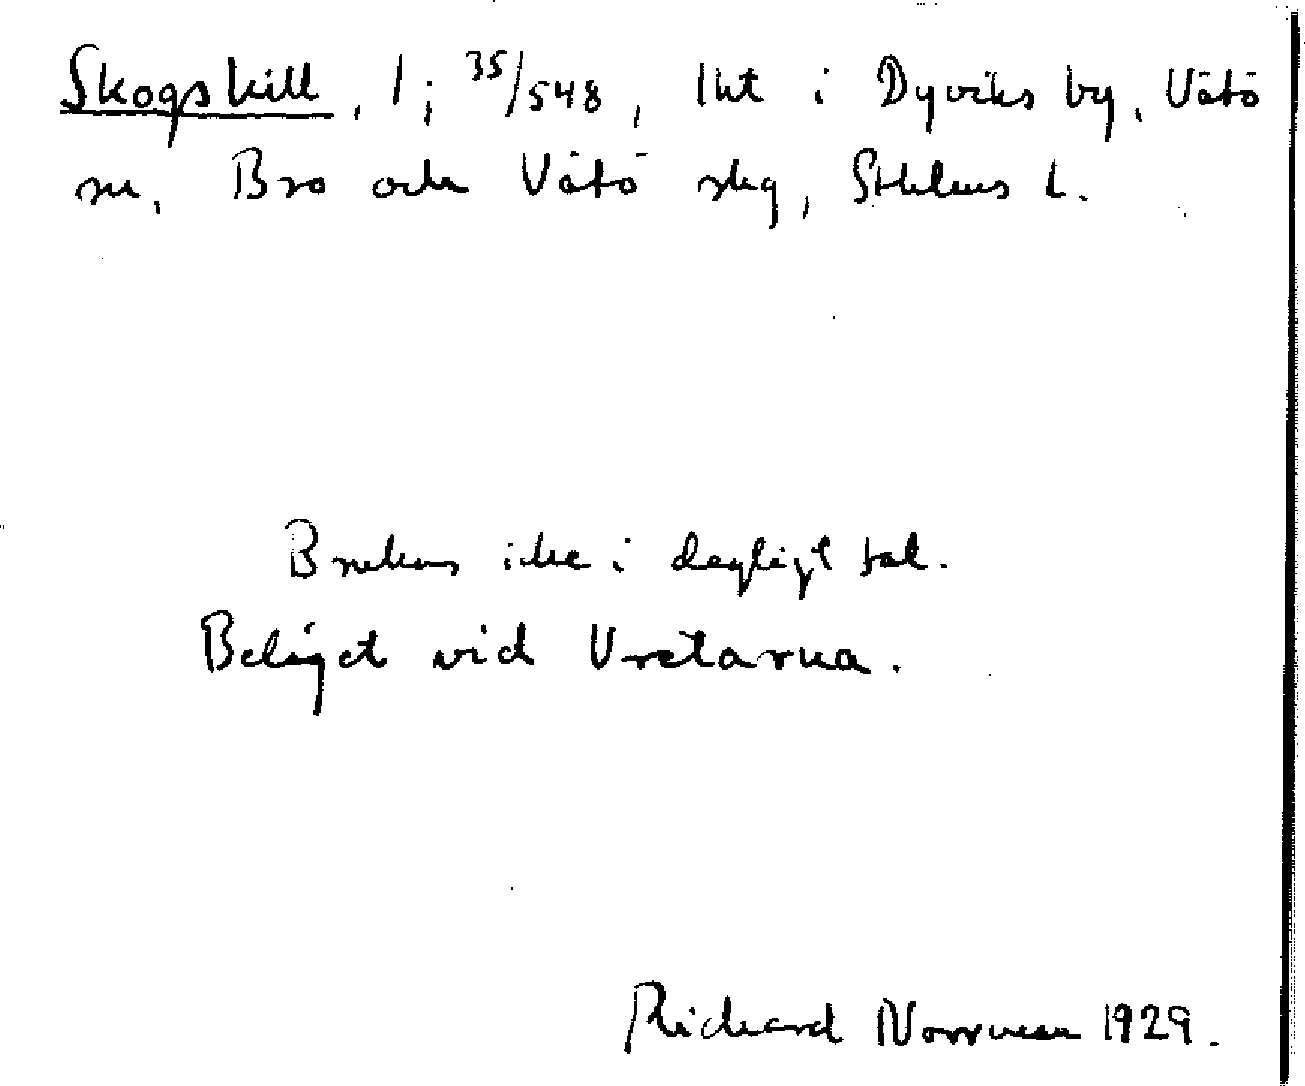 Skogskill, 1; 35/548, lht i Dyviks by, Vätö
sn, Bro och Vätö skg, Sthlms l.
Brukas icke i dagligt tal.
Beläget vid Vretarna.
Richard Norrman 1929.